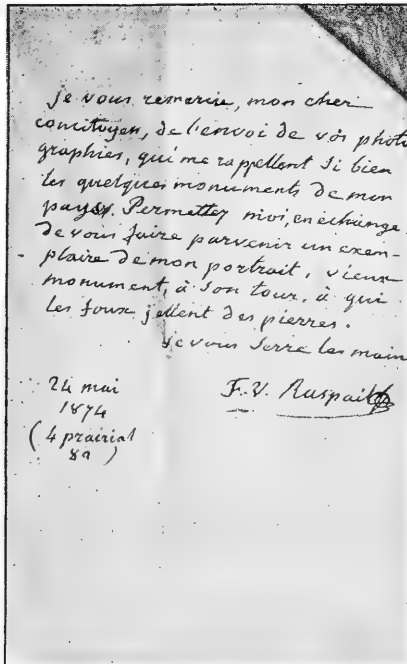 je vous remercie, mon cher
concitoyen, de l'envoi de vos photo
graphies, qui me rappellent si bien
les quelques monuments de mon
pays. Permettez moi, en échange
de vous faire parvenir un exem-
plaire de mon portrait, vieux
monument, à son tour, à qui
les foux jettent des pierres.
je vous serre les main
F. V. Raspail
24 mai
1874
(4 prairial
82)